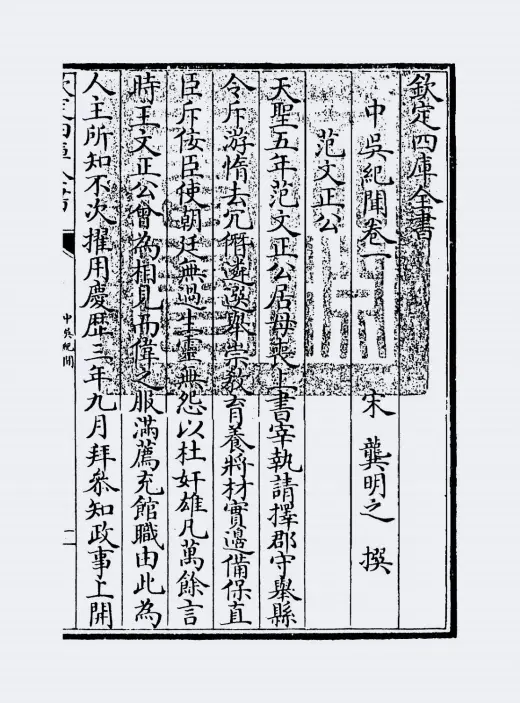 欽定四庫全書
中吳紀聞卷一
宋 龔明之 撰
范文正公
天聖五年范文正公居母喪上書宰執請擇郡守舉縣
令斥游惰去冗僭遴選舉崇教育養將材實邊備保直
臣斥佞臣使朝廷無過生靈無怨以杜奸雄凡萬餘言
時王文正公曾為相見而偉之服滿薦充館職由此為
人主所知不次擢用慶歷三年九月拜參知政事上開
中吳紀聞